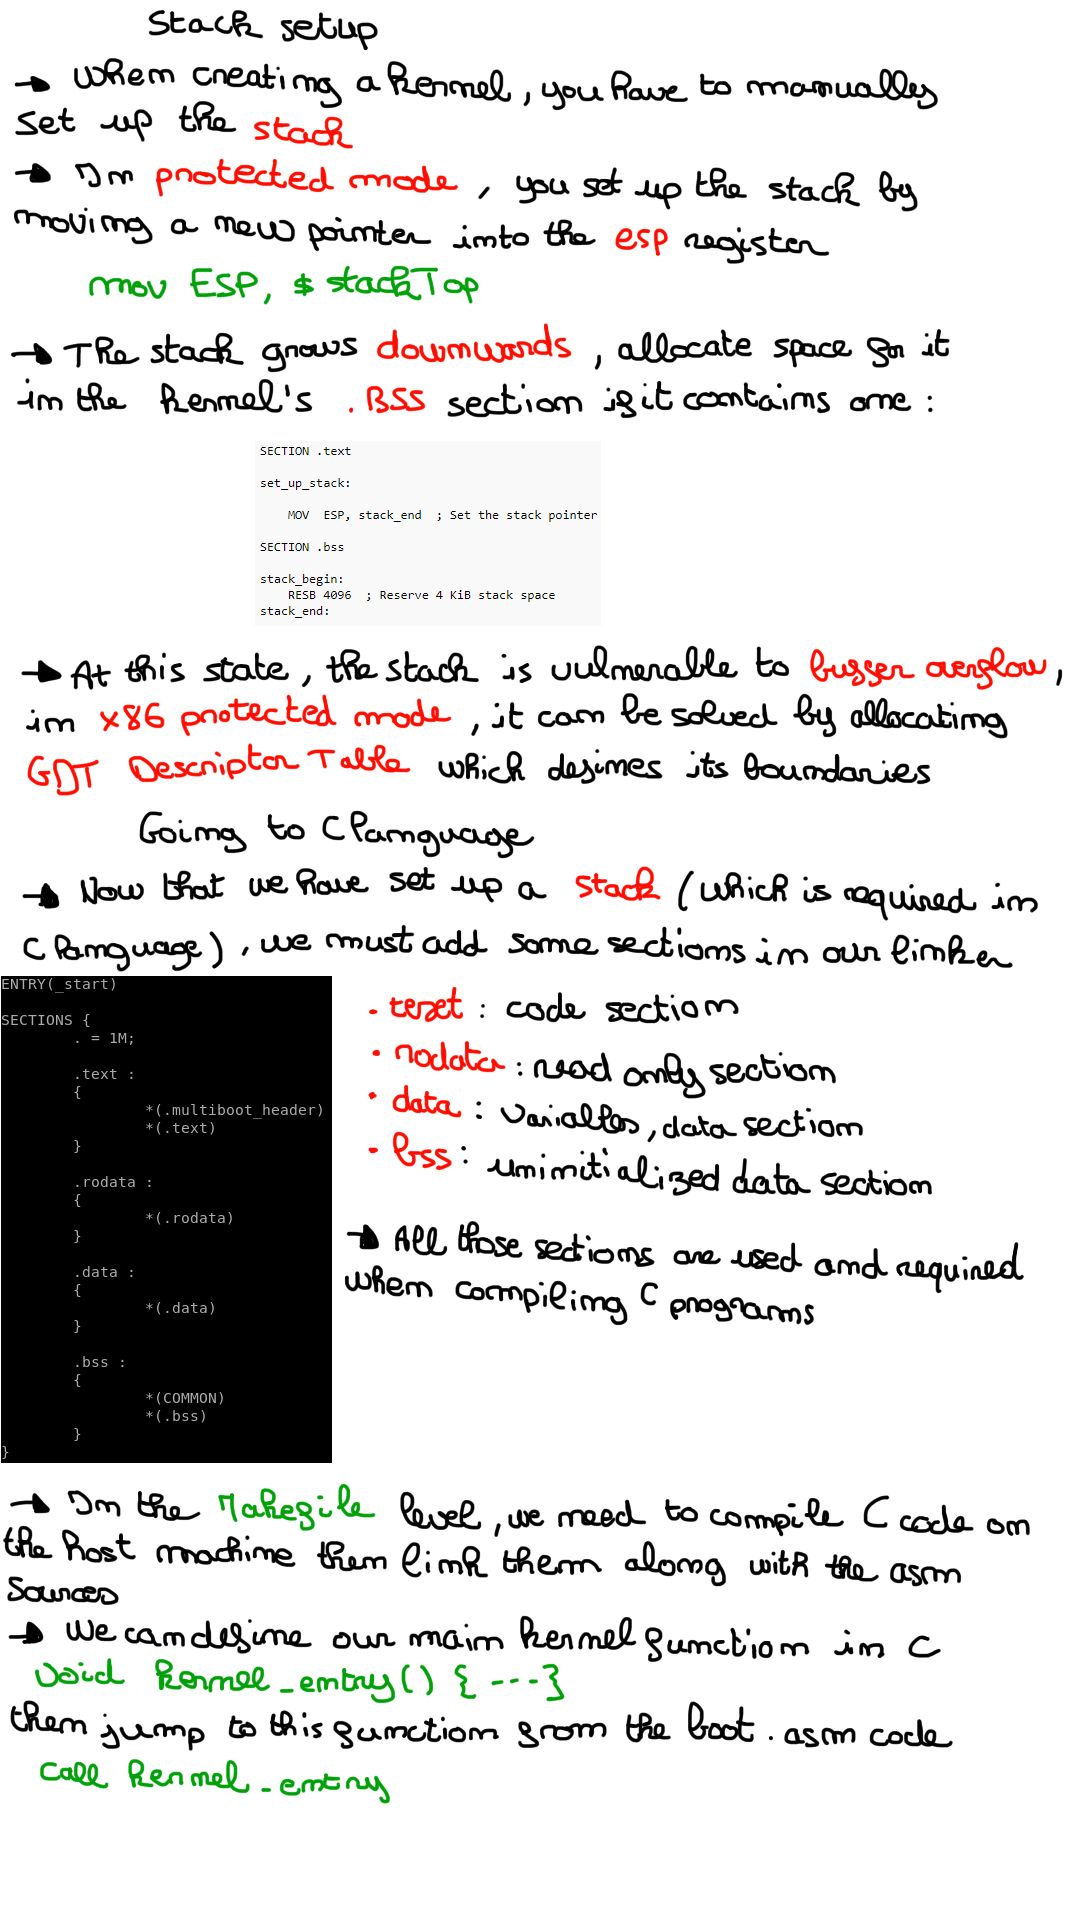 Stack setup
→ When creating a kernel, you have to manually
set up the stack
→ In protected mode, you set up the stack by
moving a new pointer into the esp register
mov ESP, $ stackTop
→ The stack grows downwards, allocate space for it
in the kernel's .BSS section if it contains one :
SECTION .text
set_up_stack:
MOV ESP, stack_end ; Set the stack pointer
SECTION .bss
stack_begin:
RESB 4096 ; Reserve 4 KiB stack space
stack_end:
→ At this state, the stack is vulnerable to buffer overflow,
in x86 protected mode, it can be solved by allocating
GDT Descriptor Table which defines its boundaries
Going to C language
→ Now that we have set up a stack (which is required in
C language), we must add some sections in our linker
ENTRY(_start)
SECTIONS {
. = 1M;
.text :
{
*(.multiboot_header)
*(.text)
}
.rodata :
{
*(.rodata)
}
.data :
{
*(.data)
}
.bss :
{
*(COMMON)
*(.bss)
}
}
. text : code section
. rodata : read only section
. data : variables, data section
. bss : uninitialized data section
→ All those sections are used and required
when compiling C programs
→ In the Makefile level, we need to compile C code on
the host machine then link them along with the asm
sources
→ We can define our main kernel function in C
void kernel_entry() { ---}
then jump to this function from the boot.asm code
call kernel_entry